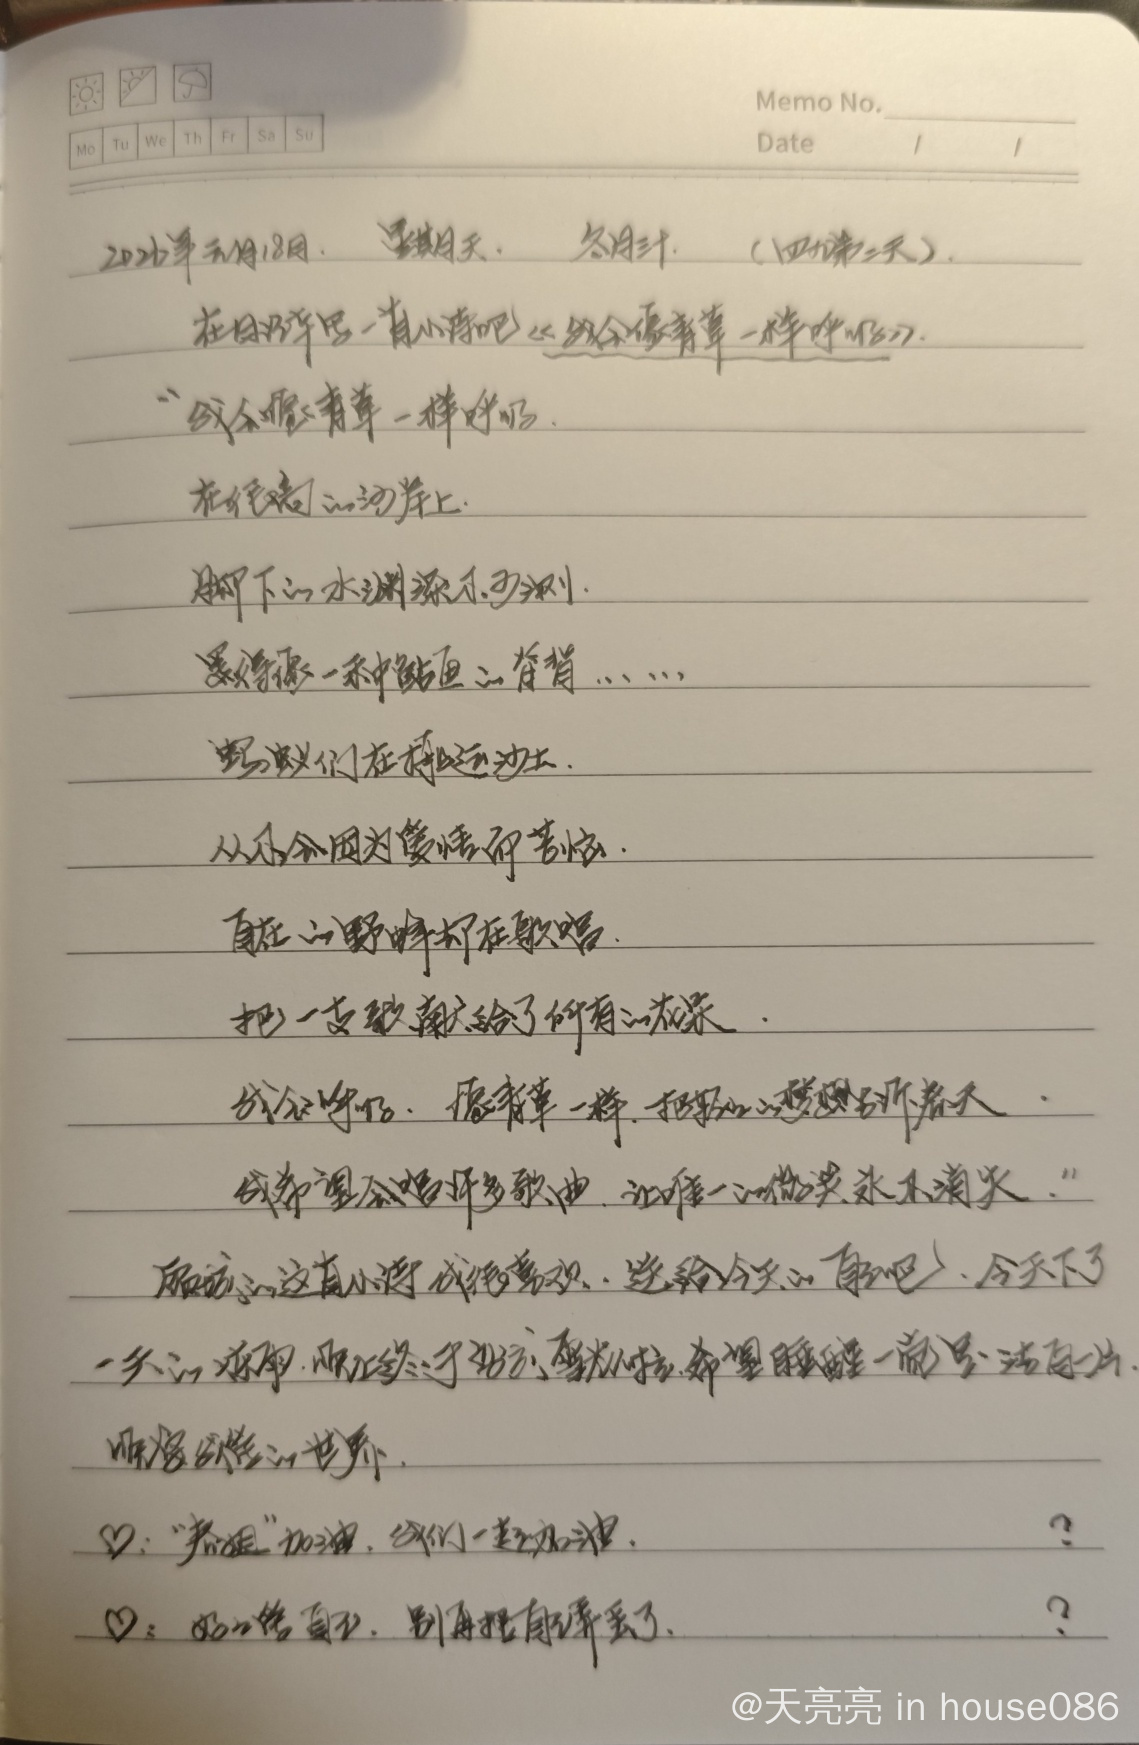 Memo No.
Mo Tu We Th Fr Sa Su
Date / /
2026年元月18日. 星期日天. 冬月三十. (四九第二天).
在日记本写一首小诗吧《我会像青草一样呼吸》.
“我会像青草一样呼吸.
在很高的河岸上.
脚下的水渊深不可测.
黑得像一种鲇鱼的脊背……
蚂蚁们在搬运沙土.
从不会因为爱情而苦恼.
自在的野蜂却在歌唱.
把一支歌献给了所有的花朵.
我会呼吸. 像青草一样. 把轻的梦想告诉春天.
我希望会唱许多歌曲. 让唯一的微笑永不消失.”
的这首小诗我很喜欢..送给今天的自己吧. 今天下了
一天的冻雨. 晚上终于 雪. 希望睡醒一觉 洁白一片.
的世界.
♡: “春姐”加油. 我们一起加油. ?
♡: 好好爱自己. 别再把自己弄丢了. ?
@天亮亮 in house086